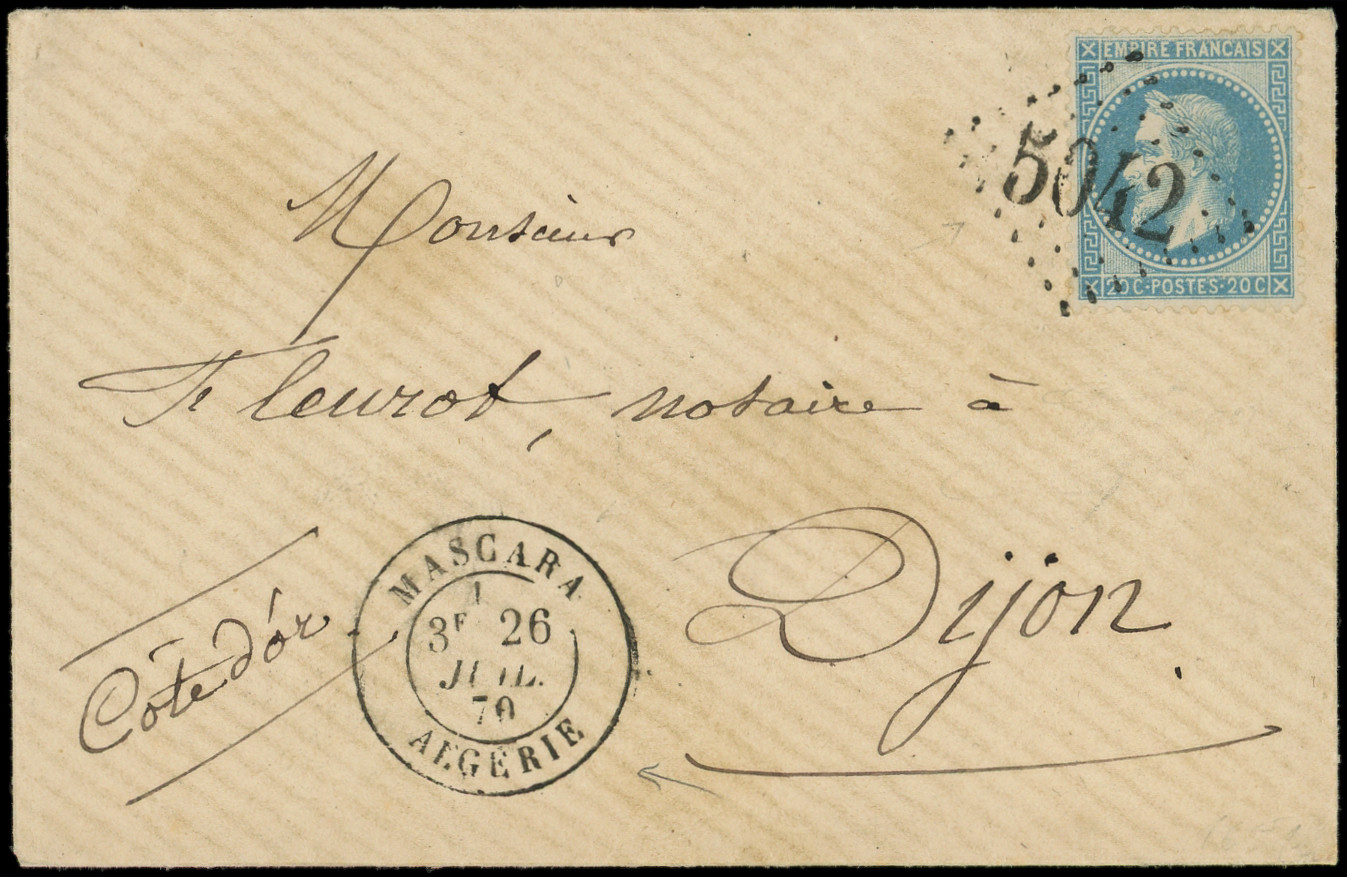 EMPIRE FRANCAIS
5042
20 C · POSTES · 20 C
Monsieur
Fleurot, notaire à
Dijon
Côte d'or
MASCARA
3E 26
JUIL.
70
ALGÉRIE